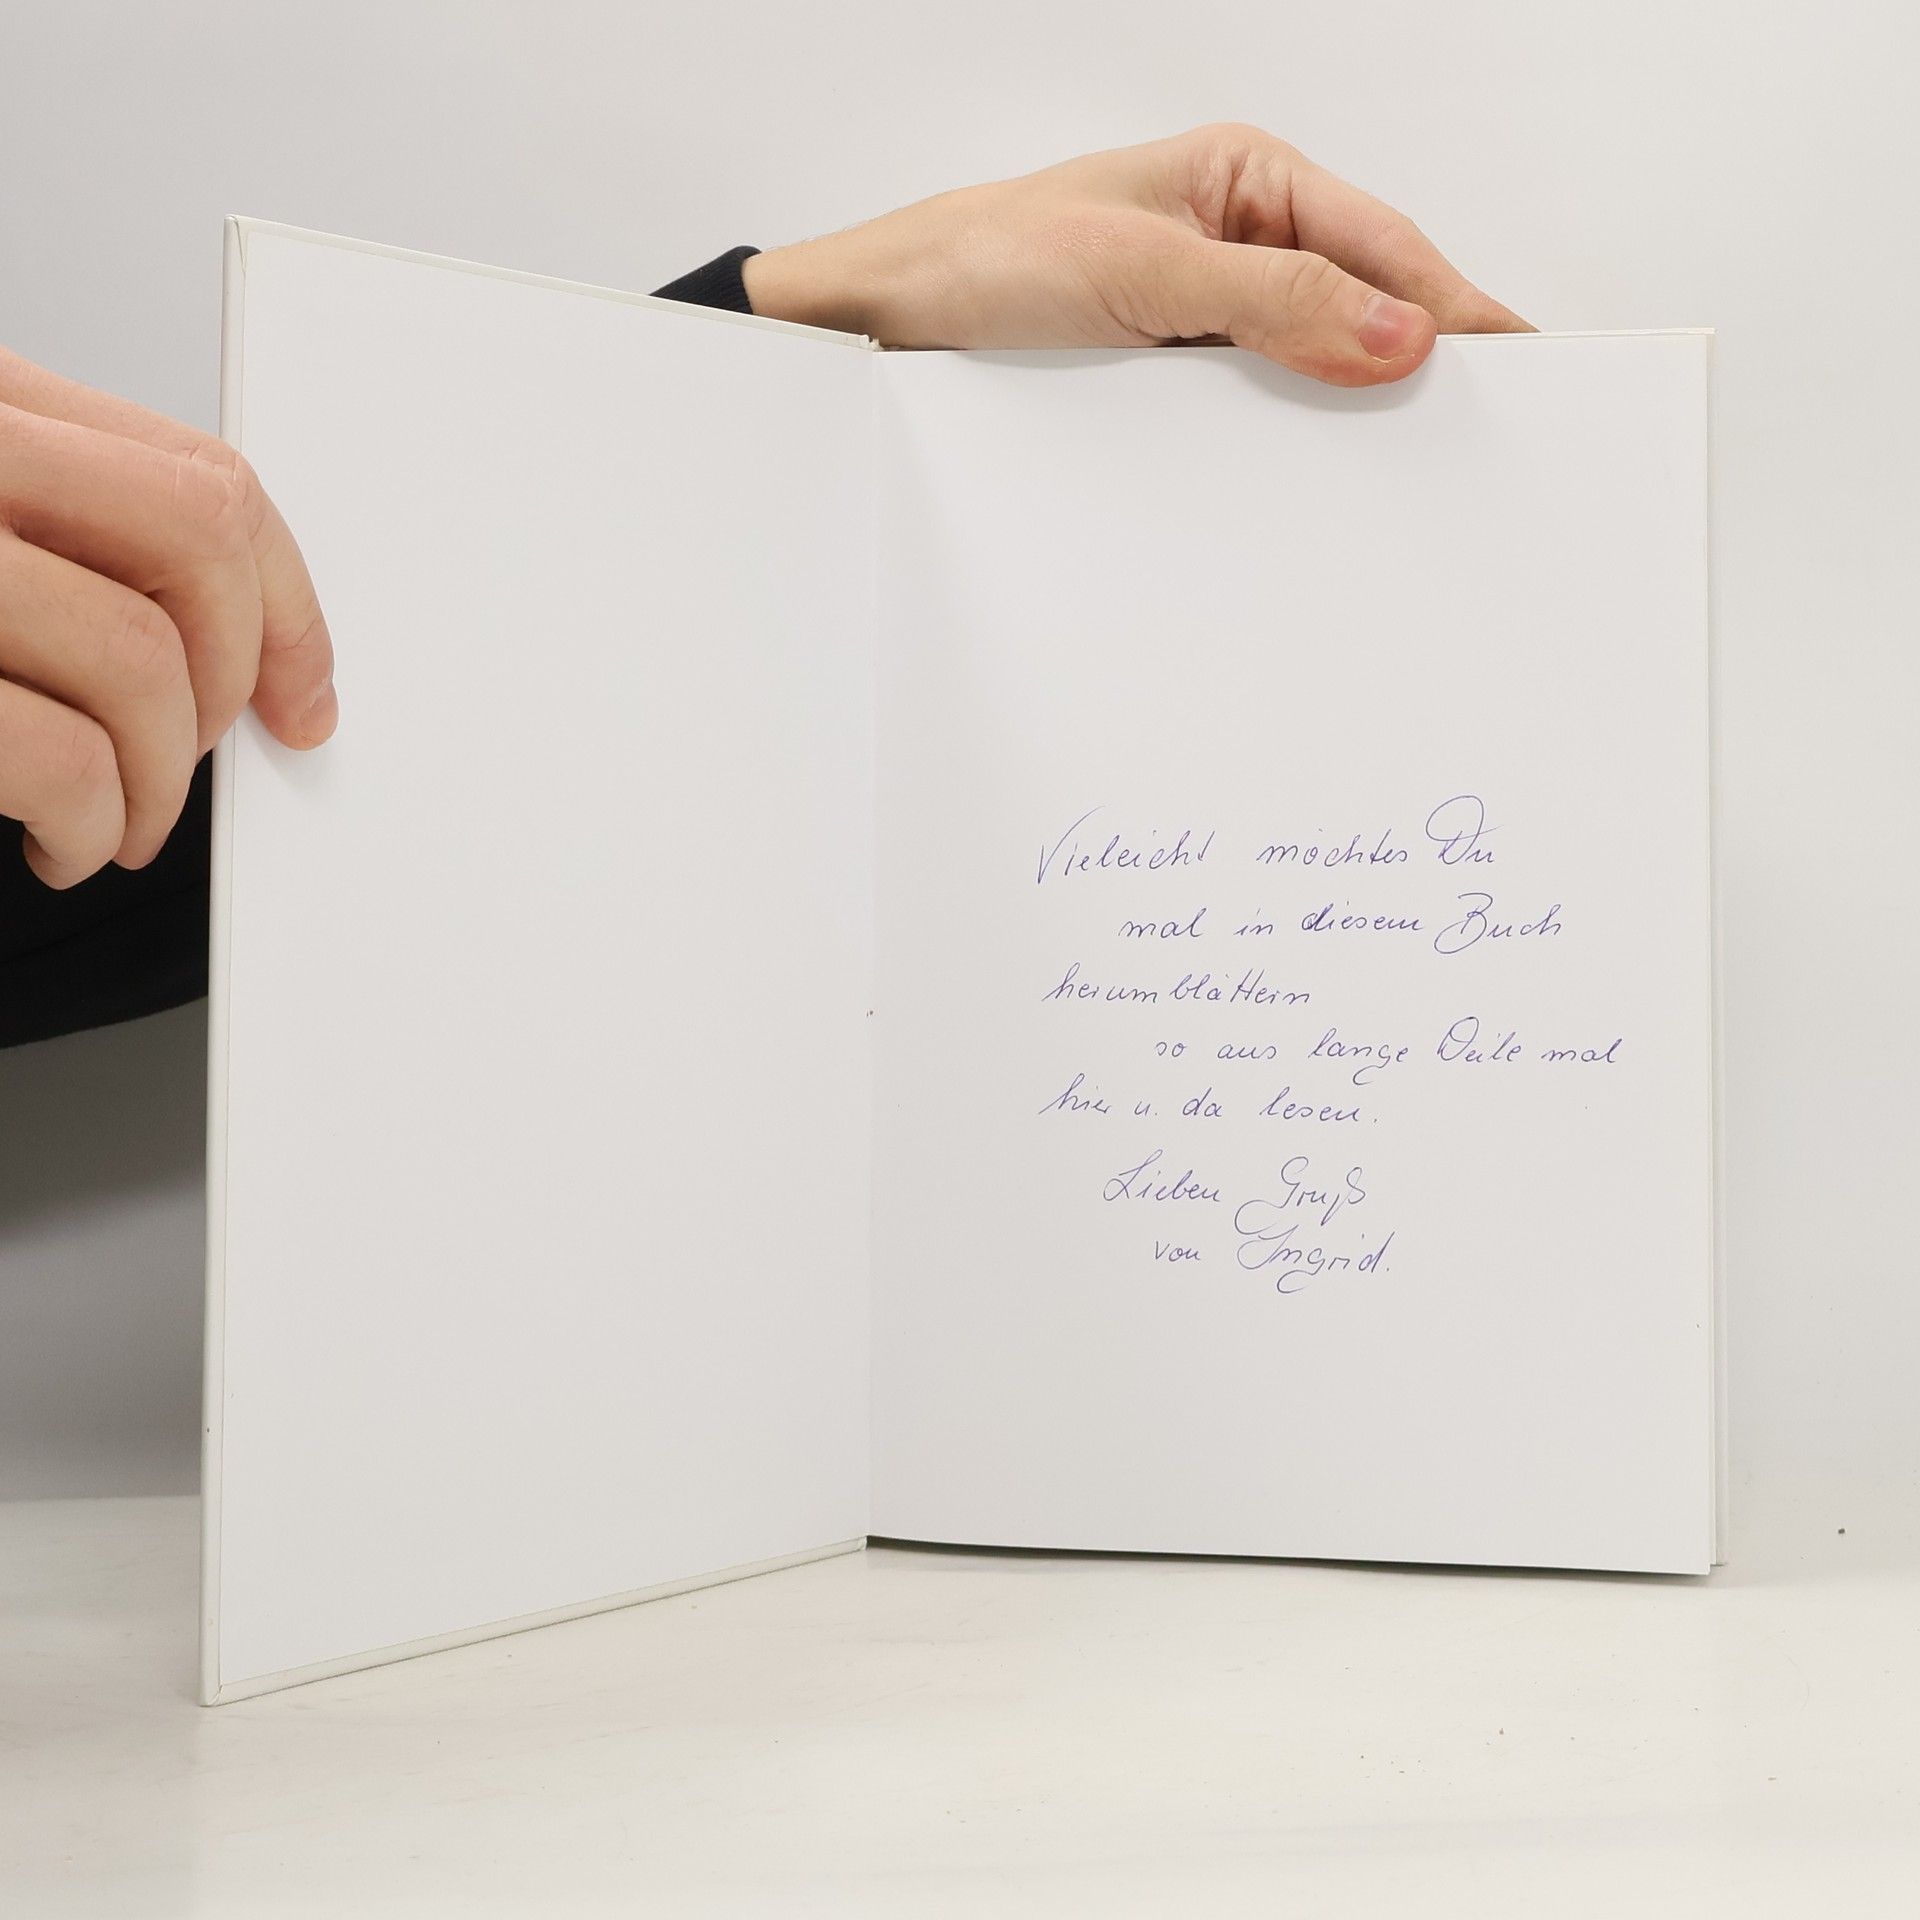 Vieleicht möchtes Du
mal in diesem Buch
herumblättern
so aus lange Weile mal
hier u. da lesen.
Lieben Gruß
von Ingrid.